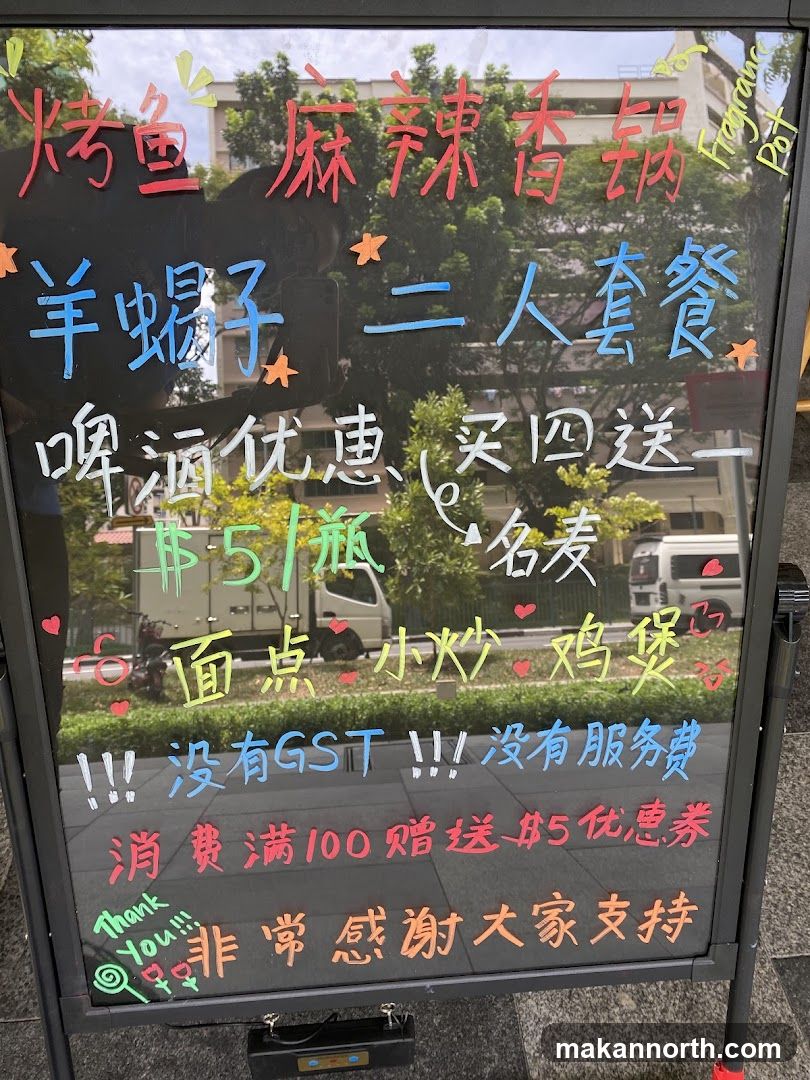 烤鱼 麻辣香锅
For Fragrance Pot
羊蝎子 二人套餐
啤酒优惠 买四送一
$5/瓶 名麦
面点 小炒 鸡煲
!!! 没有GST !!! 没有服务费
消费满100赠送$5优惠券
Thank You!!!
非常感谢大家支持
makannorth.com